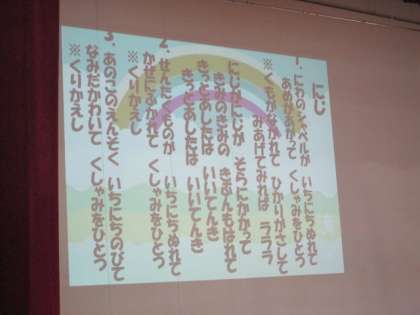 にじ
1. にわのシャベルが いちにちぬれて
あめがあがって くしゃみをひとつ
※くもがながれて ひかりがさして
みあげてみれば ラララ
にじがにじが そらにかかって
きみのきみの きぶんもはれて
きっとあしたは いいてんき
きっとあしたは いいてんき
2. せんたくものが いちにちぬれて
かぜにふかれて くしゃみをひとつ
※くりかえし
3. あのこのえんそく いちにちのびて
なみだかわいて くしゃみをひとつ
※くりかえし